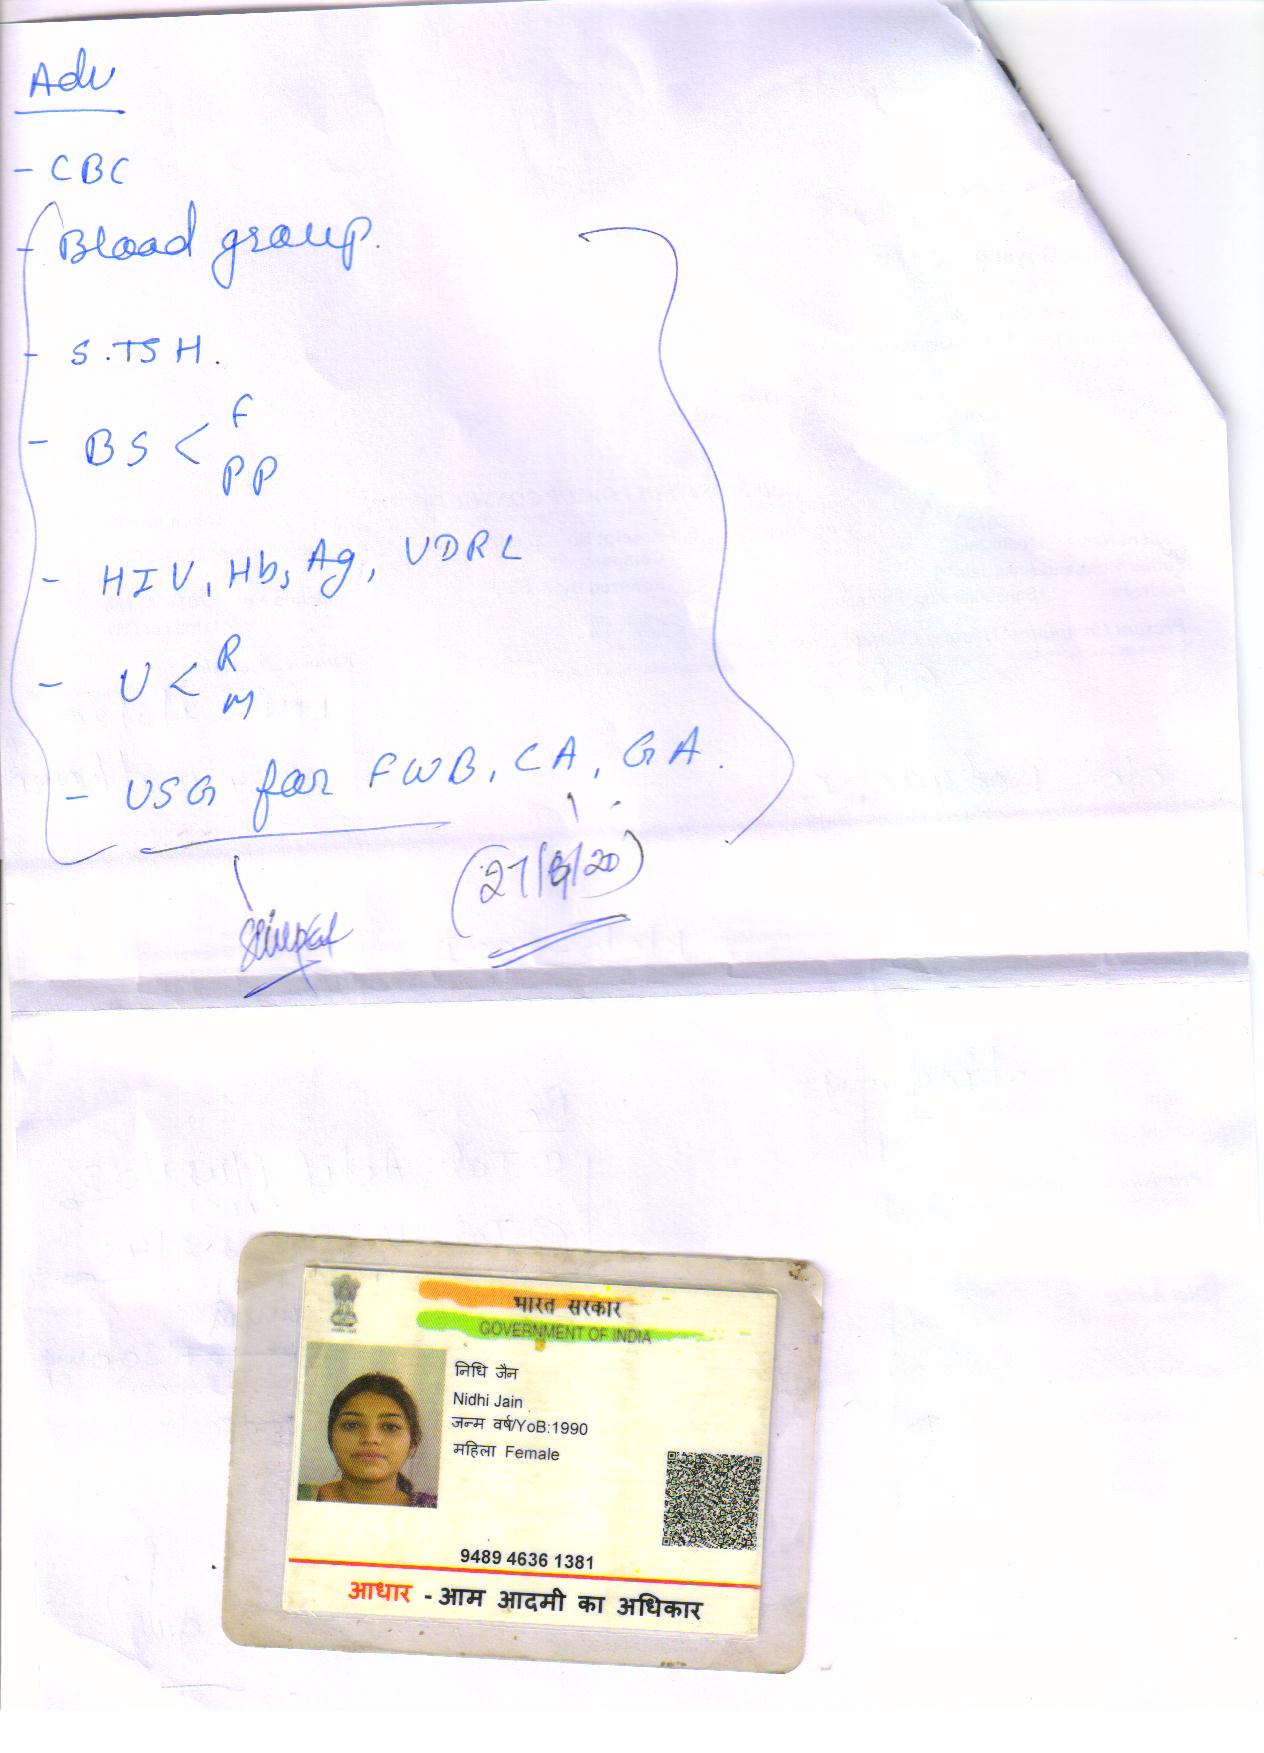 Adv
- CBC
- Blood group.
- S.TSH.
- BS < F
PP
- HIV, Hb, Ag, VDRL
- U < R
M
- USG for FWB, CA, GA.
भारत सरकार
GOVERNMENT OF INDIA
निधि जैन
Nidhi Jain
जन्म वर्ष/YoB:1990
महिला Female
9489 4636 1381
आधार - आम आदमी का अधिकार